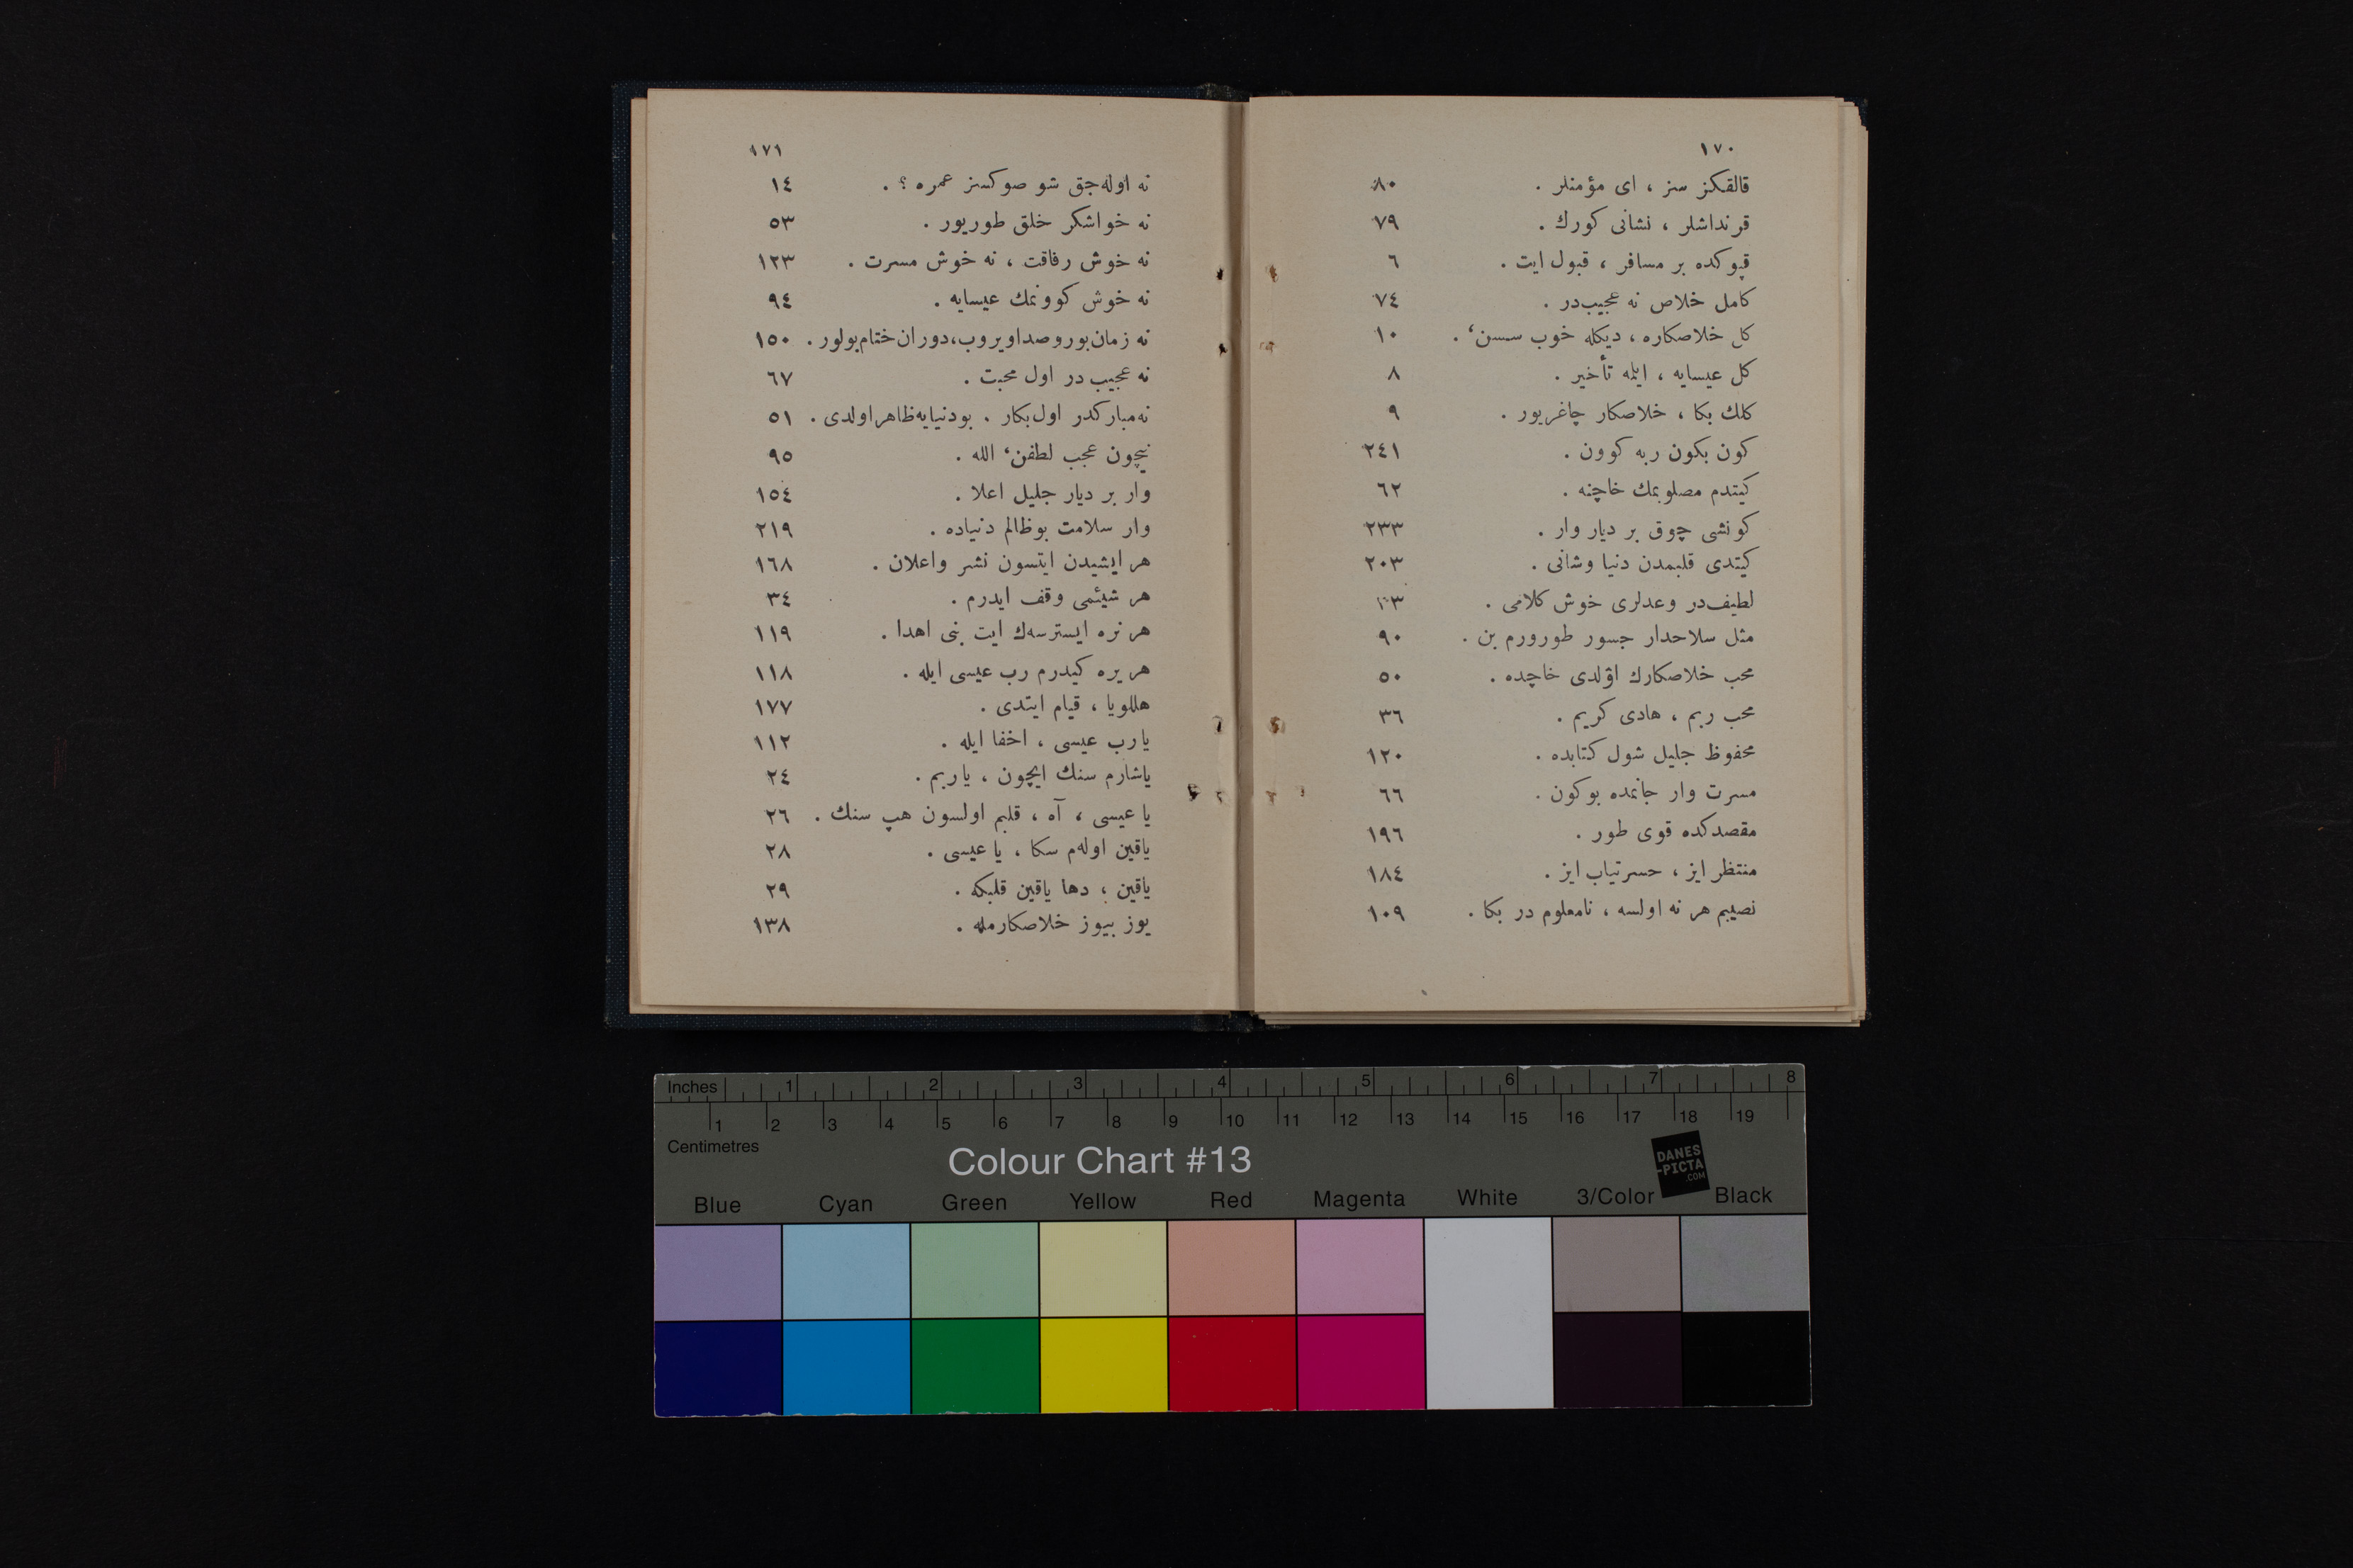 ١٧٠
قالقكز سز ، ای مؤمنلر . ٨٠
قرنداشلر ، نشانی كورك . ٧٩
قپوكده بر مسافر ، قبول ايت . ٦
كامل خلاص نه عجيب‌در . ٧٤
كل خلاصكاره ، ديكله خوب سسن‘ . ١٠
كل عيسايه ، ايلمه تأخير . ٨
كلك بكا ، خلاصكار چاغريور . ٩
كون بكون ربه كوون . ٢٤١
كيتدم مصلوبمك خاچنه . ٦٢
كونشی چوق بر ديار وار . ٢٣٣
كيتدی قلبمدن دنيا وشانی . ٢٠٣
لطيف‌در وعدلری خوش كلامی .
مثل سلاحدار جسور طورورم بن . ٩٠
محب خلاصكارك اؤلدی خاچده . ٥٠
محب ربم ، هادی كريم . ٣٦
محفوظ جليل شول كتابده . ١٢٠
مسرت وار جانمده بوكون . ٦٦
مقصدكده قوی طور . ١٩٦
منتظر ايز ، حسرتياب ايز . ١٨٤
نصيبم هر نه اولسه ، نامعلوم در بكا . ١٠٩
١٧١
نه اوله‌جق شو صوكسز عمره ؟ . ١٤
نه خواشكر خلق طوريور . ٥٣
نه خوش رفاقت ، نه خوش مسرت . ١٢٣
نه خوش كوونمك عيسايه . ٩٤
نه زمان‌بوروصداويروب،دوران‌ختام‌بولور . ١٥٠
نه عجيب در اول محبت . ٦٧
نه‌مباركدر اول‌بكار . بودنيايه‌ظاهراولدی . ٥١
نيچون عجب لطفن‘ الله . ٩٥
وار بر ديار جليل اعلا . ١٥٤
وار سلامت بوظالم دنياده . ٢١٩
هر ايشيدن ايتسون نشر واعلان . ١٦٨
هر شيئمی وقف ايدرم . ٣٤
هر نره ايسترسه‌ك ايت بنی اهدا . ١١٩
هر يره كيدرم رب عيسی ايله . ١١٨
هللويا ، قيام ايتدی . ١٧٧
يا رب عيسی ، اخفا ايله . ١١٢
ياشارم سنك ايچون ، ياربم . ٢٤
يا عيسی ، آه ، قلبم اولسون هپ سنك . ٢٦
ياقين اولەم سكا ، يا عيسی . ٢٨
ياقين ، دها ياقين قلبكه . ٢٩
يوز بيوز خلاصكارمله . ١٣٨
Inches 1 2 3 4 5 6 7 8
1 2 3 4 5 6 7 8 9 10 11 12 13 14 15 16 17 18 19
Centimetres
Colour Chart #13
DANES
-PICTA
.COM
Blue Cyan Green Yellow Red Magenta White 3/Color Black